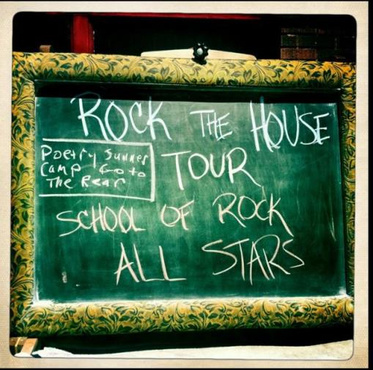 ROCK THE HOUSE
TOUR
Poetry Summer
Camp Go to
The Rear
SCHOOL OF ROCK
ALL STARS